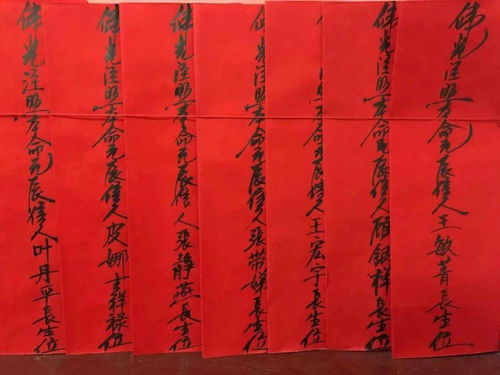 佛光注照本命元辰信人王敏菁長生位
佛光注照本命元辰信人顾银祥長生位
本命元辰信人王宏宇長生位
佛光注照本命元辰信人張带娣長生位
佛光注照本命元辰信人張静燕長生位
佛光注照本命元辰信人皮娜吉祥禄位
佛光注照本命元辰信人叶丹平長生位